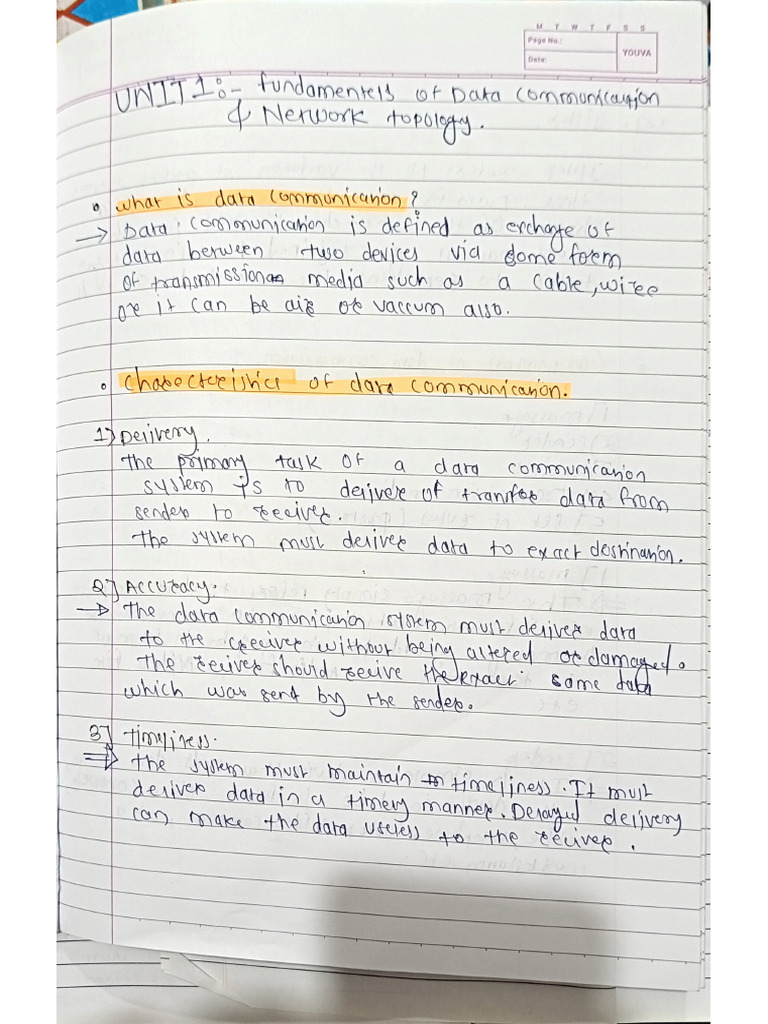 M T W T F S S
Page No.:
Date:
YOUVA
UNIT 1:- fundamentels of Data communication
& Network topology.
• what is data communication?
→ Data communication is defined as exchange of
data between two devices via some form
of transmission media such as a cable, wire
or it can be air or vaccum also.
• charecteristics of data communication.
1) Delivery.
The primary task of a data communication
system is to deliver or transfer data from
sender to reciver.
The system must deliver data to exact destination.
2] Accuracy.
→ The data communication system must deliver data
to the reciver without being altered or damaged.
The reciver should recive the exact same data
which was sent by the sender.
3] Timeliness.
⇒ The system must maintain timeliness. It must
deliver data in a timely manner. Delayed delivery
can make the data useless to the reciver.